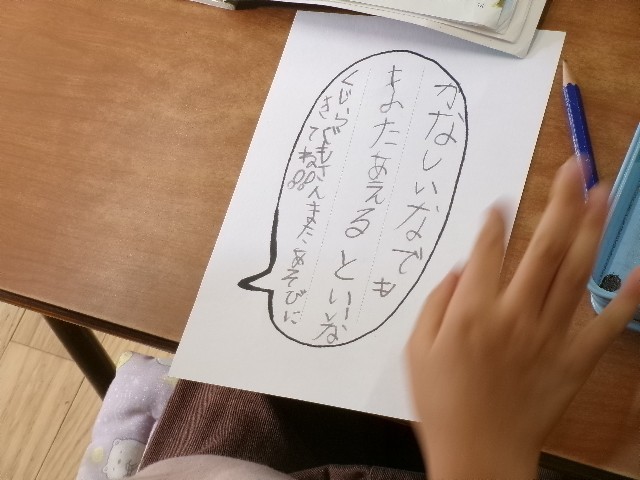 かなしいなでも
またあえるといいな
くじらぐもさんまたあそびに
きてね